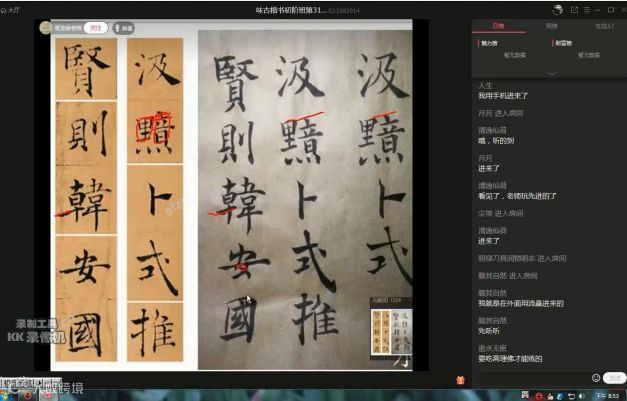 大厅
味古楷书初阶班第31... ID:1582914
关注
汲黯卜式推
賢則韓安國
汲黯卜式
汲黯卜式推
賢則韓安國
日榜 周榜
魅力榜 财富榜
暂无数据 暂无数据
人生
我用手机进来了
月月 进入房间
清逸仙荷
哦，听的到
月月
进来了
清逸仙荷
看见了，老师玩先进的了
尘埃 进入房间
清逸仙荷
进来了
进入房间
顺其自然 进入房间
顺其自然
我就是在外面用流量进来的
顺其自然
先听听
逝水无痕
录制工具
KK 录像机
下午 8:53